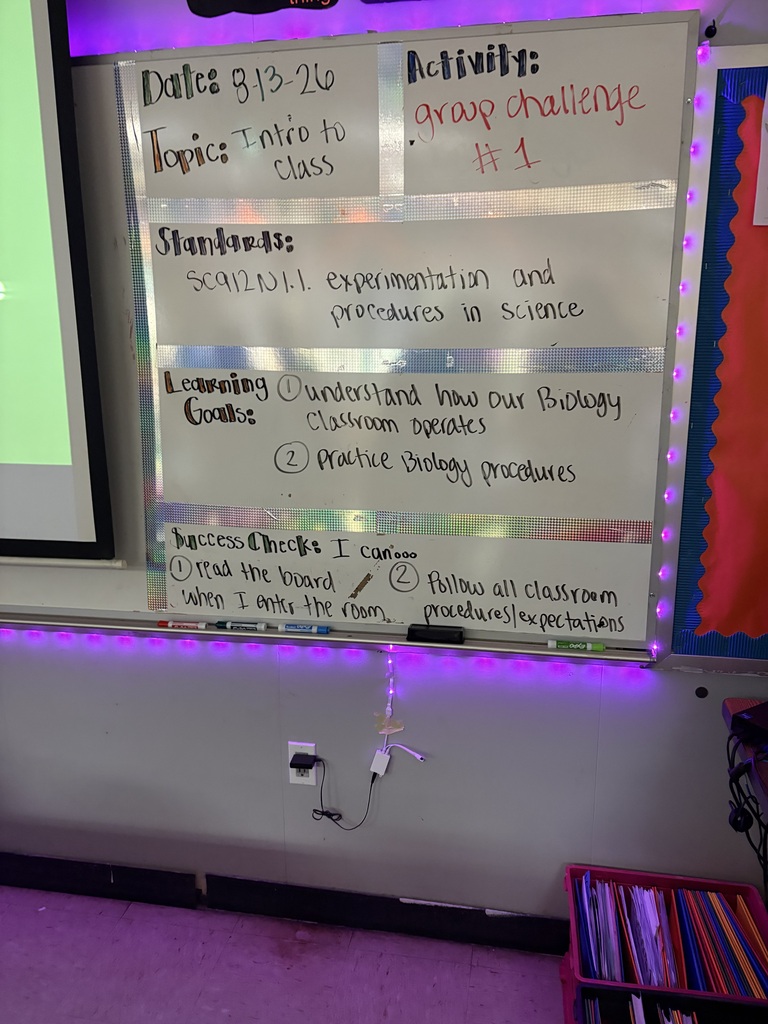 thing
Date: 8-13-26
Topic: Intro to
class
Activity:
group challenge
#1
Standards:
SC912N1.1. experimentation and
procedures in science
Learning
Goals:
① understand how our Biology
classroom operates
② practice Biology procedures
Success Check: I can...
① read the board
when I enter the room
② follow all classroom
procedures/expectations
EXPO